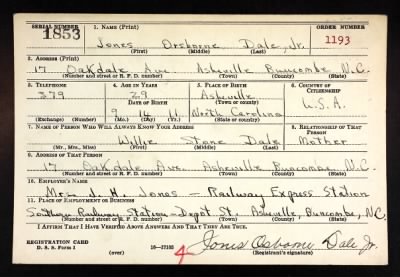 SERIAL NUMBER 1. NAME (Print) ORDER NUMBER
1853 Jones Orsborne Dale, Jr. 1193
(First) (Middle) (Last)
2. ADDRESS (Print)
17 Oakdale Ave Asheville Buncombe N.C.
(Number and street or R. F. D. number) (Town) (County) (State)
3. TELEPHONE 4. AGE IN YEARS 5. PLACE OF BIRTH 6. COUNTRY OF CITIZENSHIP
379 29 Asheville
DATE OF BIRTH (Town or county) U.S.A.
9 14 11 North Carolina
(Exchange) (Number) (Mo.) (Day) (Yr.) (State or country)
7. NAME OF PERSON WHO WILL ALWAYS KNOW YOUR ADDRESS 8. RELATIONSHIP OF THAT PERSON
Willie Stone Dale Mother
(Mr., Mrs., Miss) (First) (Middle) (Last)
9. ADDRESS OF THAT PERSON
17 Oakdale Ave. Asheville Buncombe N.C.
(Number and street or R. F. D. number) (Town) (County) (State)
10. EMPLOYER'S NAME
J. H. Jones - Railway Express Station
11. PLACE OF EMPLOYMENT OR BUSINESS
Southern Railway Station - Depot St. Asheville, Buncombe, N.C.
(Number and street or R. F. D. number) (Town) (County) (State)
I AFFIRM THAT I HAVE VERIFIED ABOVE ANSWERS AND THAT THEY ARE TRUE.
REGISTRATION CARD
D. S. S. Form 1 16-17105 4 Jones Osborne Dale Jr.
(Registrant's signature)